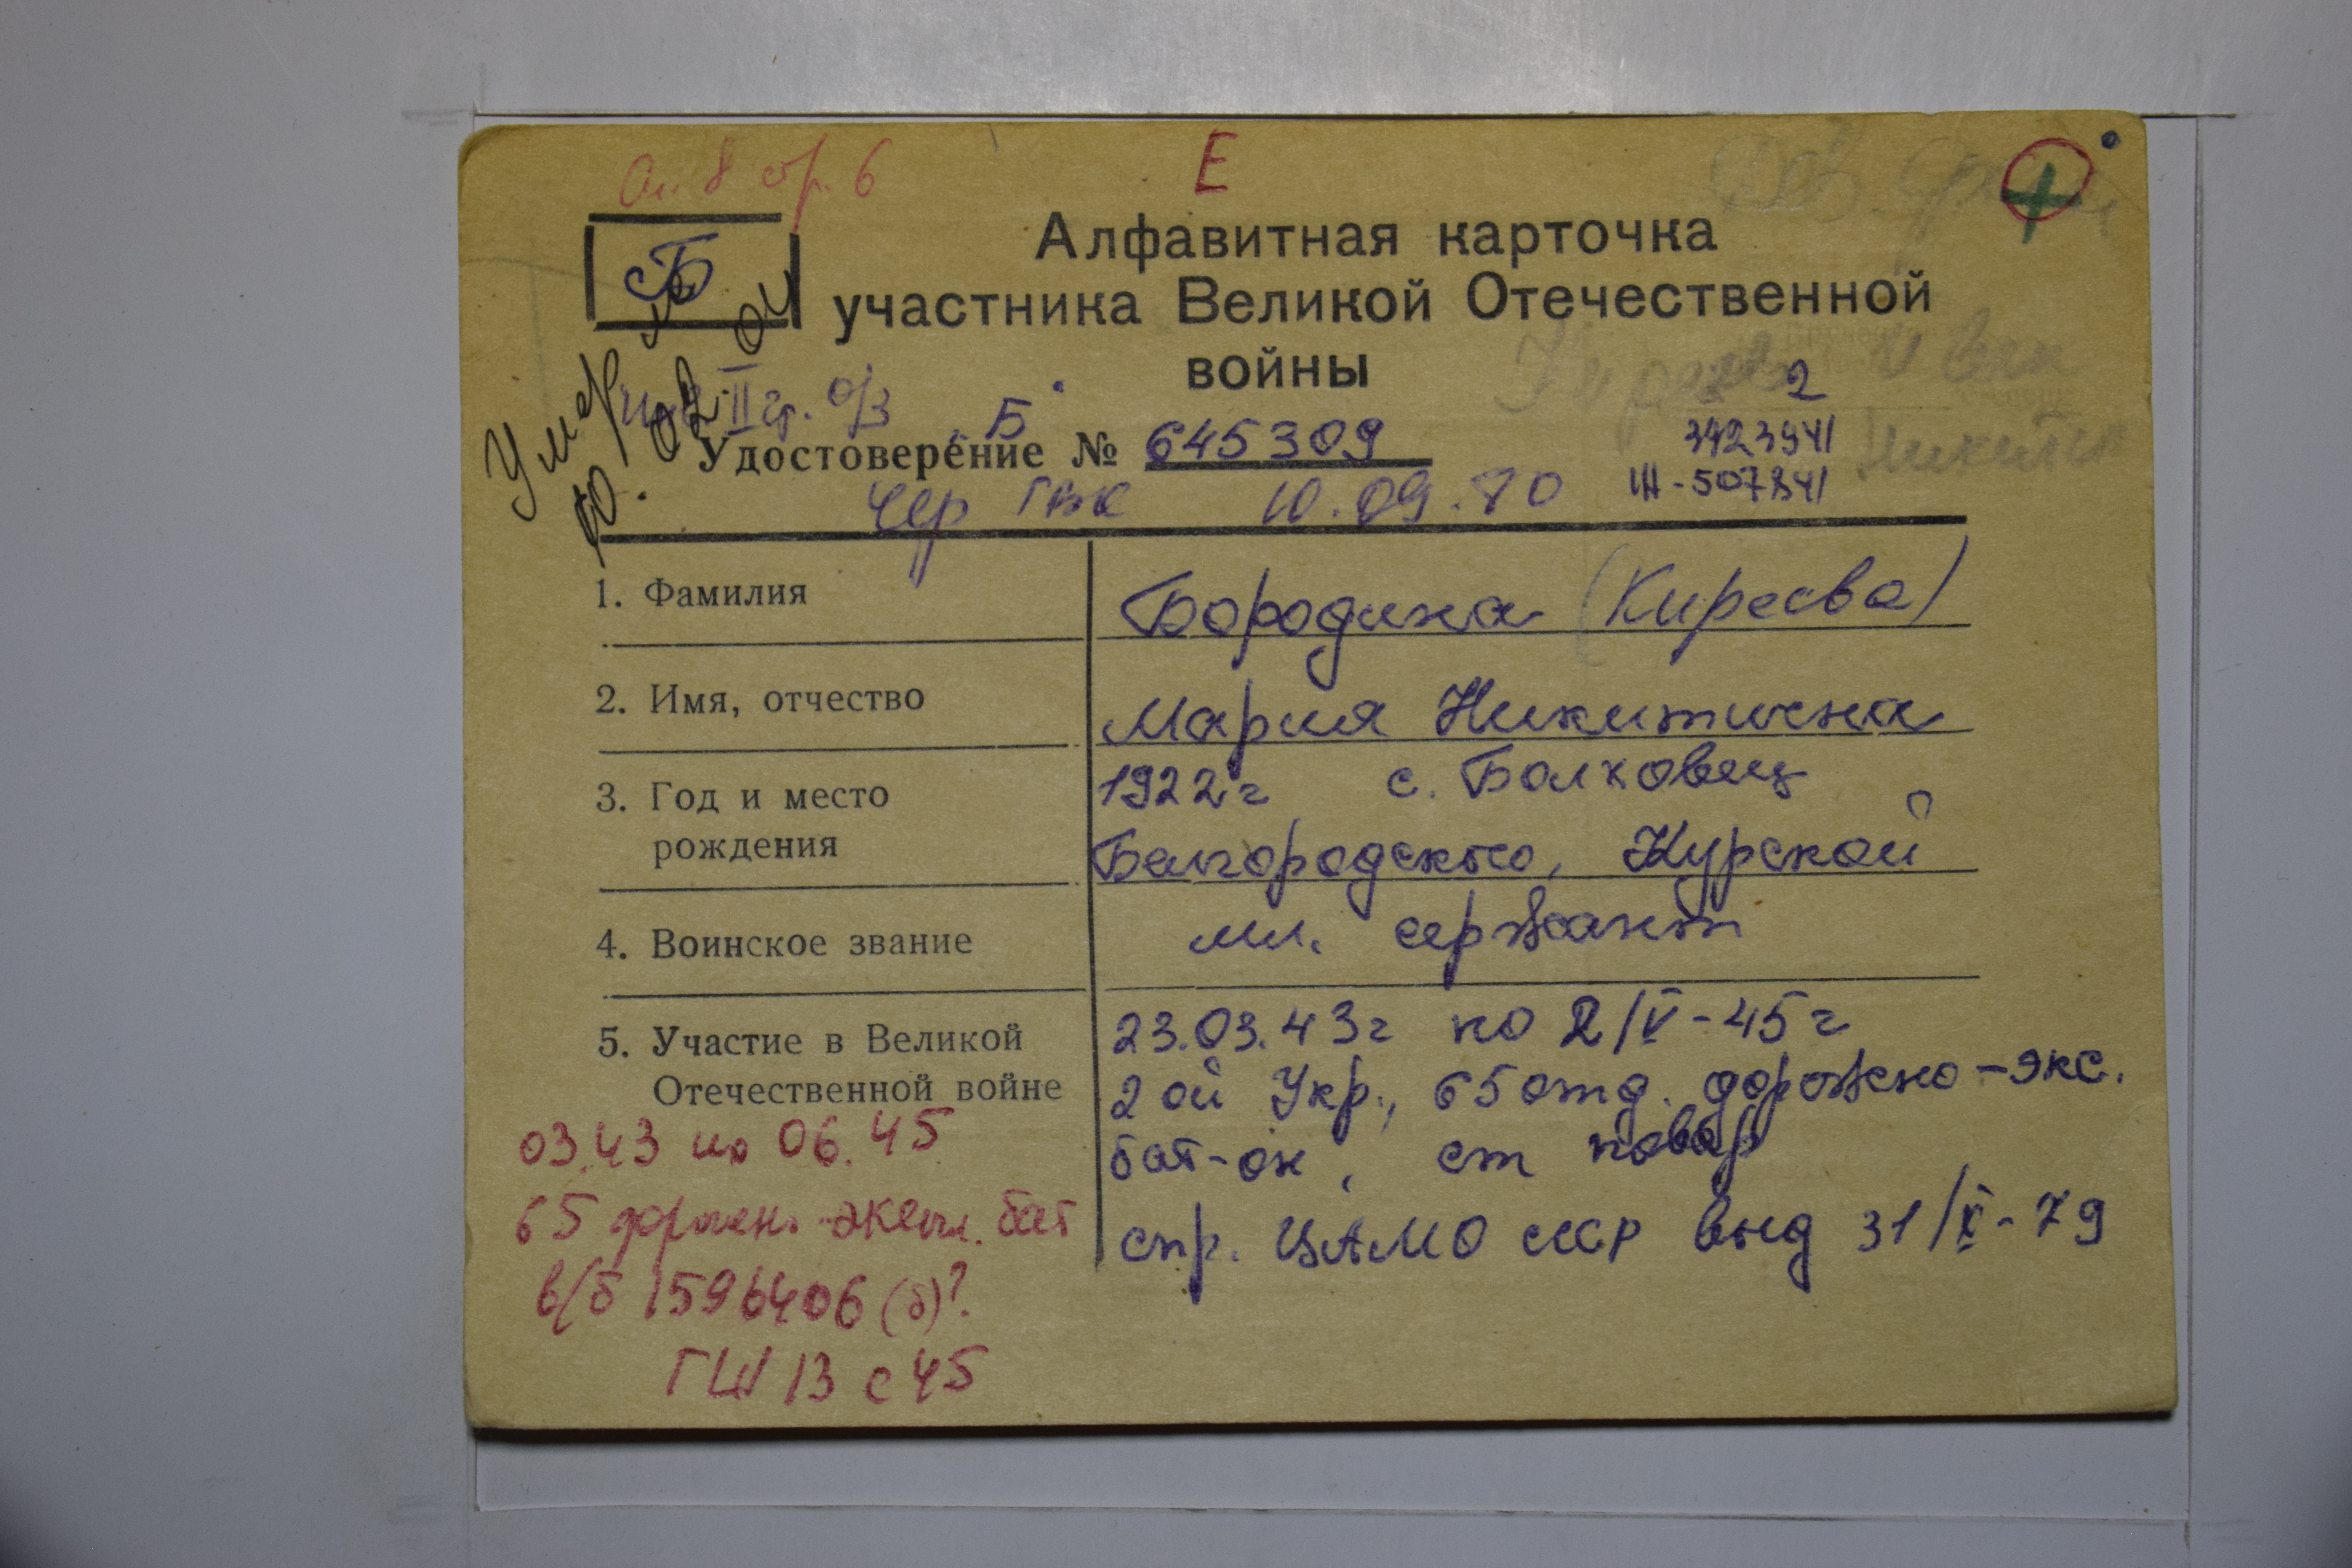 Оп. 8 стр. 6
Е
Б
Алфавитная карточка
участника Великой Отечественной
войны
Умерла
10. 02. 04
Инв II гр. о/з
Б
2
Удостоверение № 645309
3423941
III-507841
Чер ГВК 10.09.80
1. Фамилия
Бородина (Киреева)
2. Имя, отчество
Мария Никитична
3. Год и место
рождения
1922г с. Болховец
Белгородского, Курской
4. Воинское звание
мл. сержант
5. Участие в Великой
Отечественной войне
23.03.43г по 2/V-45г
2ой Укр., 65 отд. дорожно-экс.
бат-он, ст повар
спр. ЦАМО СССР выд 31/X-79
03.43 по 06.45
65 дорожн. экспл. бат
в/б 1596406 (б)?
ГШ 13 с 45